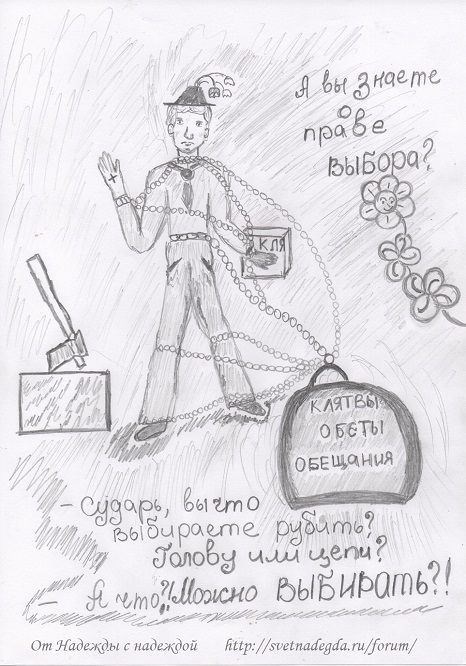 А вы знаете
о
праве
выбора?
КЛЯ
КЛЯТВЫ
ОБЕТЫ
ОБЕЩАНИЯ
- Сударь, вы что
выбираете рубить?
Голову или цепи?
- А что?! Можно ВЫБИРАТЬ?!
От Надежды с надеждой http://svetnadegda.ru/forum/